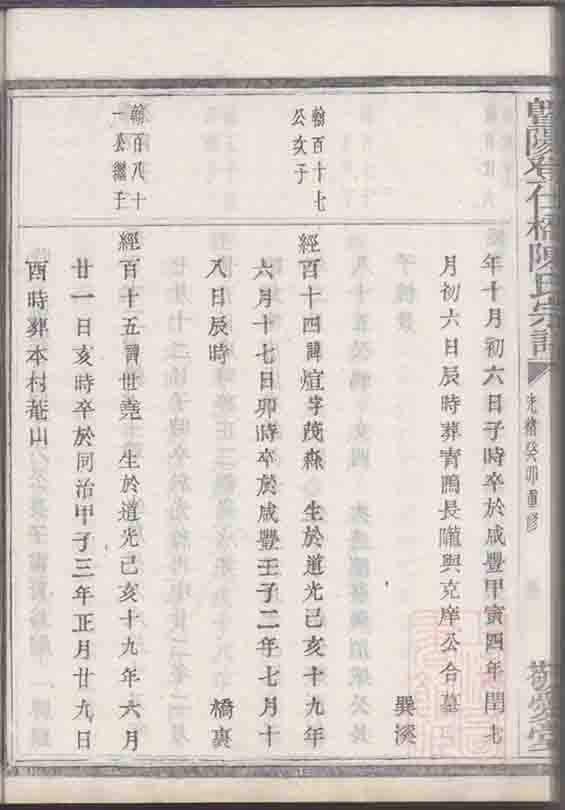 暨陽孝仕橋陳氏宗譜
光緒癸卯重修
敬愛堂
年十月初六日子時卒於咸豐甲寅四年閏七
月初六日辰時葬寳鴈長隴與克庠公合墓
巽淡
翰百十七
公次子
經百十四諱煊字茂森 生於道光己亥十九年
六月十七日卯時卒於咸豐壬子二年七月十
八日辰時 橋裏
翰百八十
一公繼子
經百十五諱世堯 生於道光己亥十九年六月
廿一日亥時卒於同治甲子三年正月廿九日
酉時葬本村菴山